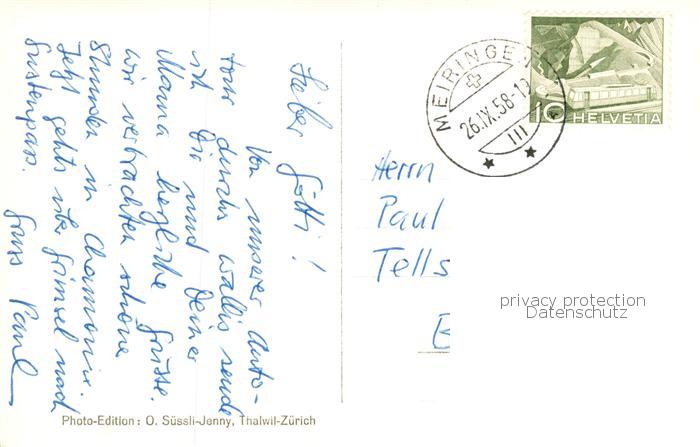 Lieber Götti!
Von unserer Auto-
tour durchs Wallis sende
ich Dir und Deiner
Mama herzliche Grüsse.
Wir verbrachten schöne
Stunden in Chamonix.
Jetzt geht's über Grimsel nach
Sustenpass. Gruss Paul
MEIRINGEN
26.IX.58-18
III
10 HELVETIA
Herrn
Paul
Tells
B
privacy protection
Datenschutz
Photo-Edition: O. Süssli-Jenny, Thalwil-Zürich